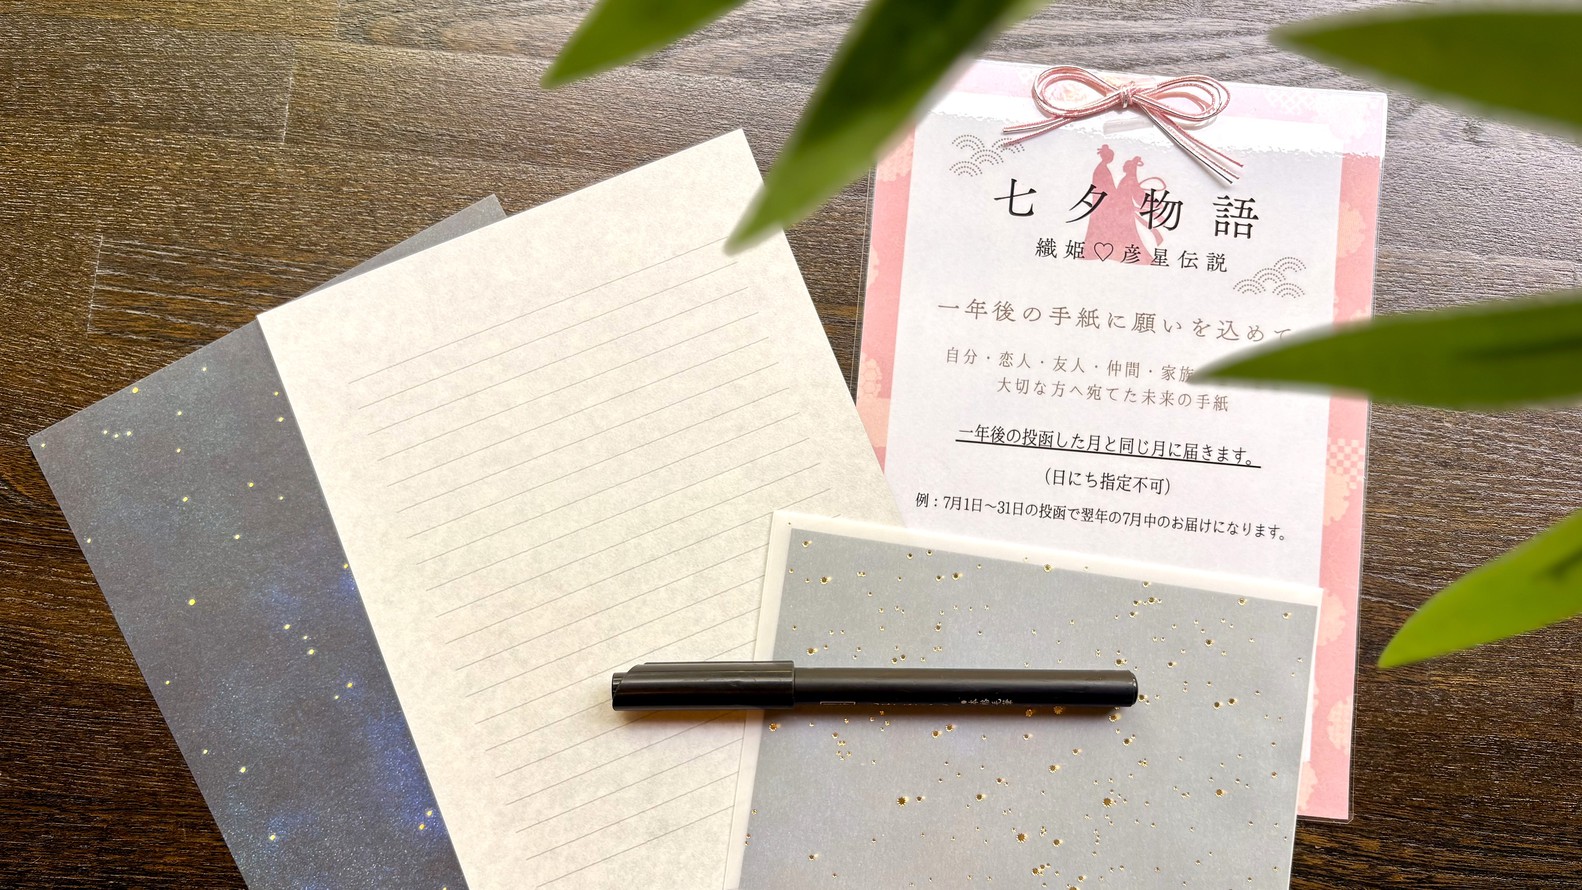 七夕物語
織姫♡彦星伝説
一年後の手紙に願いを込めて
自分・恋人・友人・仲間・家族
大切な方へ宛てた未来の手紙
一年後の投函した月と同じ月に届きます。
(日にち指定不可)
例：7月1日～31日の投函で翌年の7月中のお届けになります。